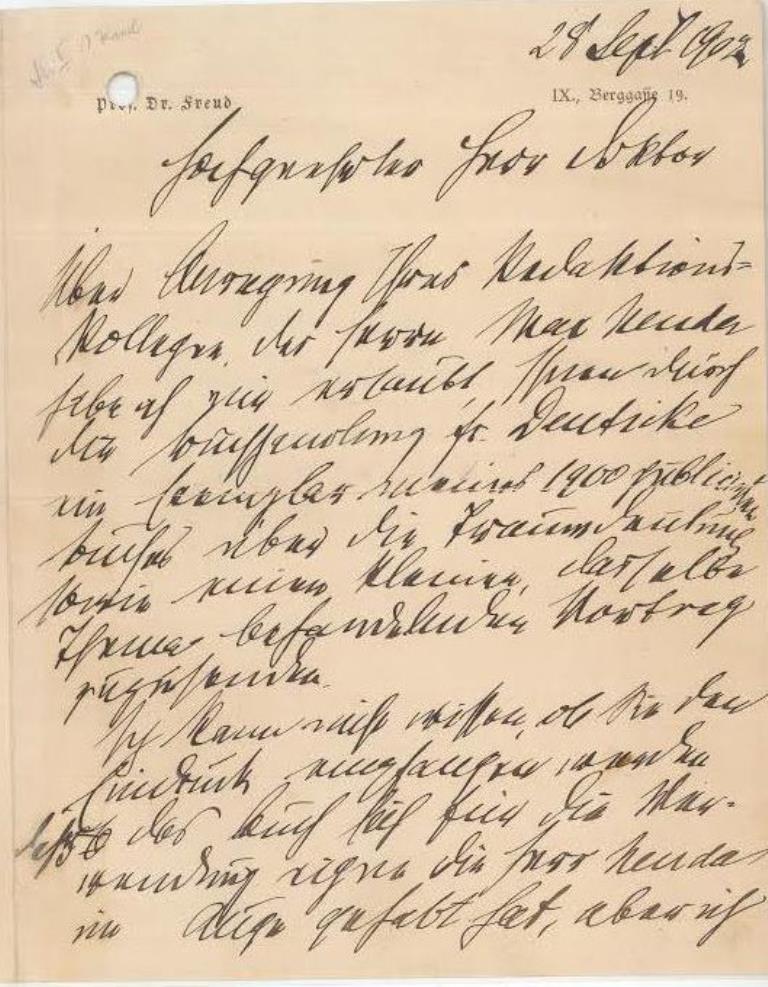 28 Sept 1902
Prof. Dr. Freud
IX., Berggasse 19.
Hochgeehrter Herr Doktor
Über Anregung Ihres Redaktions-
kollegen, des Herrn Max Nordau
habe ich mir erlaubt, Ihnen durch
die Buchhandlung Fr. Deuticke
ein Exemplar meines 1900 publicirten
Buches über die Traumdeutung
sowie einen kleinen, dasselbe
Thema behandelnden Vortrag
zuzusenden.
Ich kann nicht wissen, ob Sie den
Eindruck empfangen werden
daß das Buch sich für die Ver-
wendung eigne die Herr Nordau
im Auge gehabt hat, aber ich